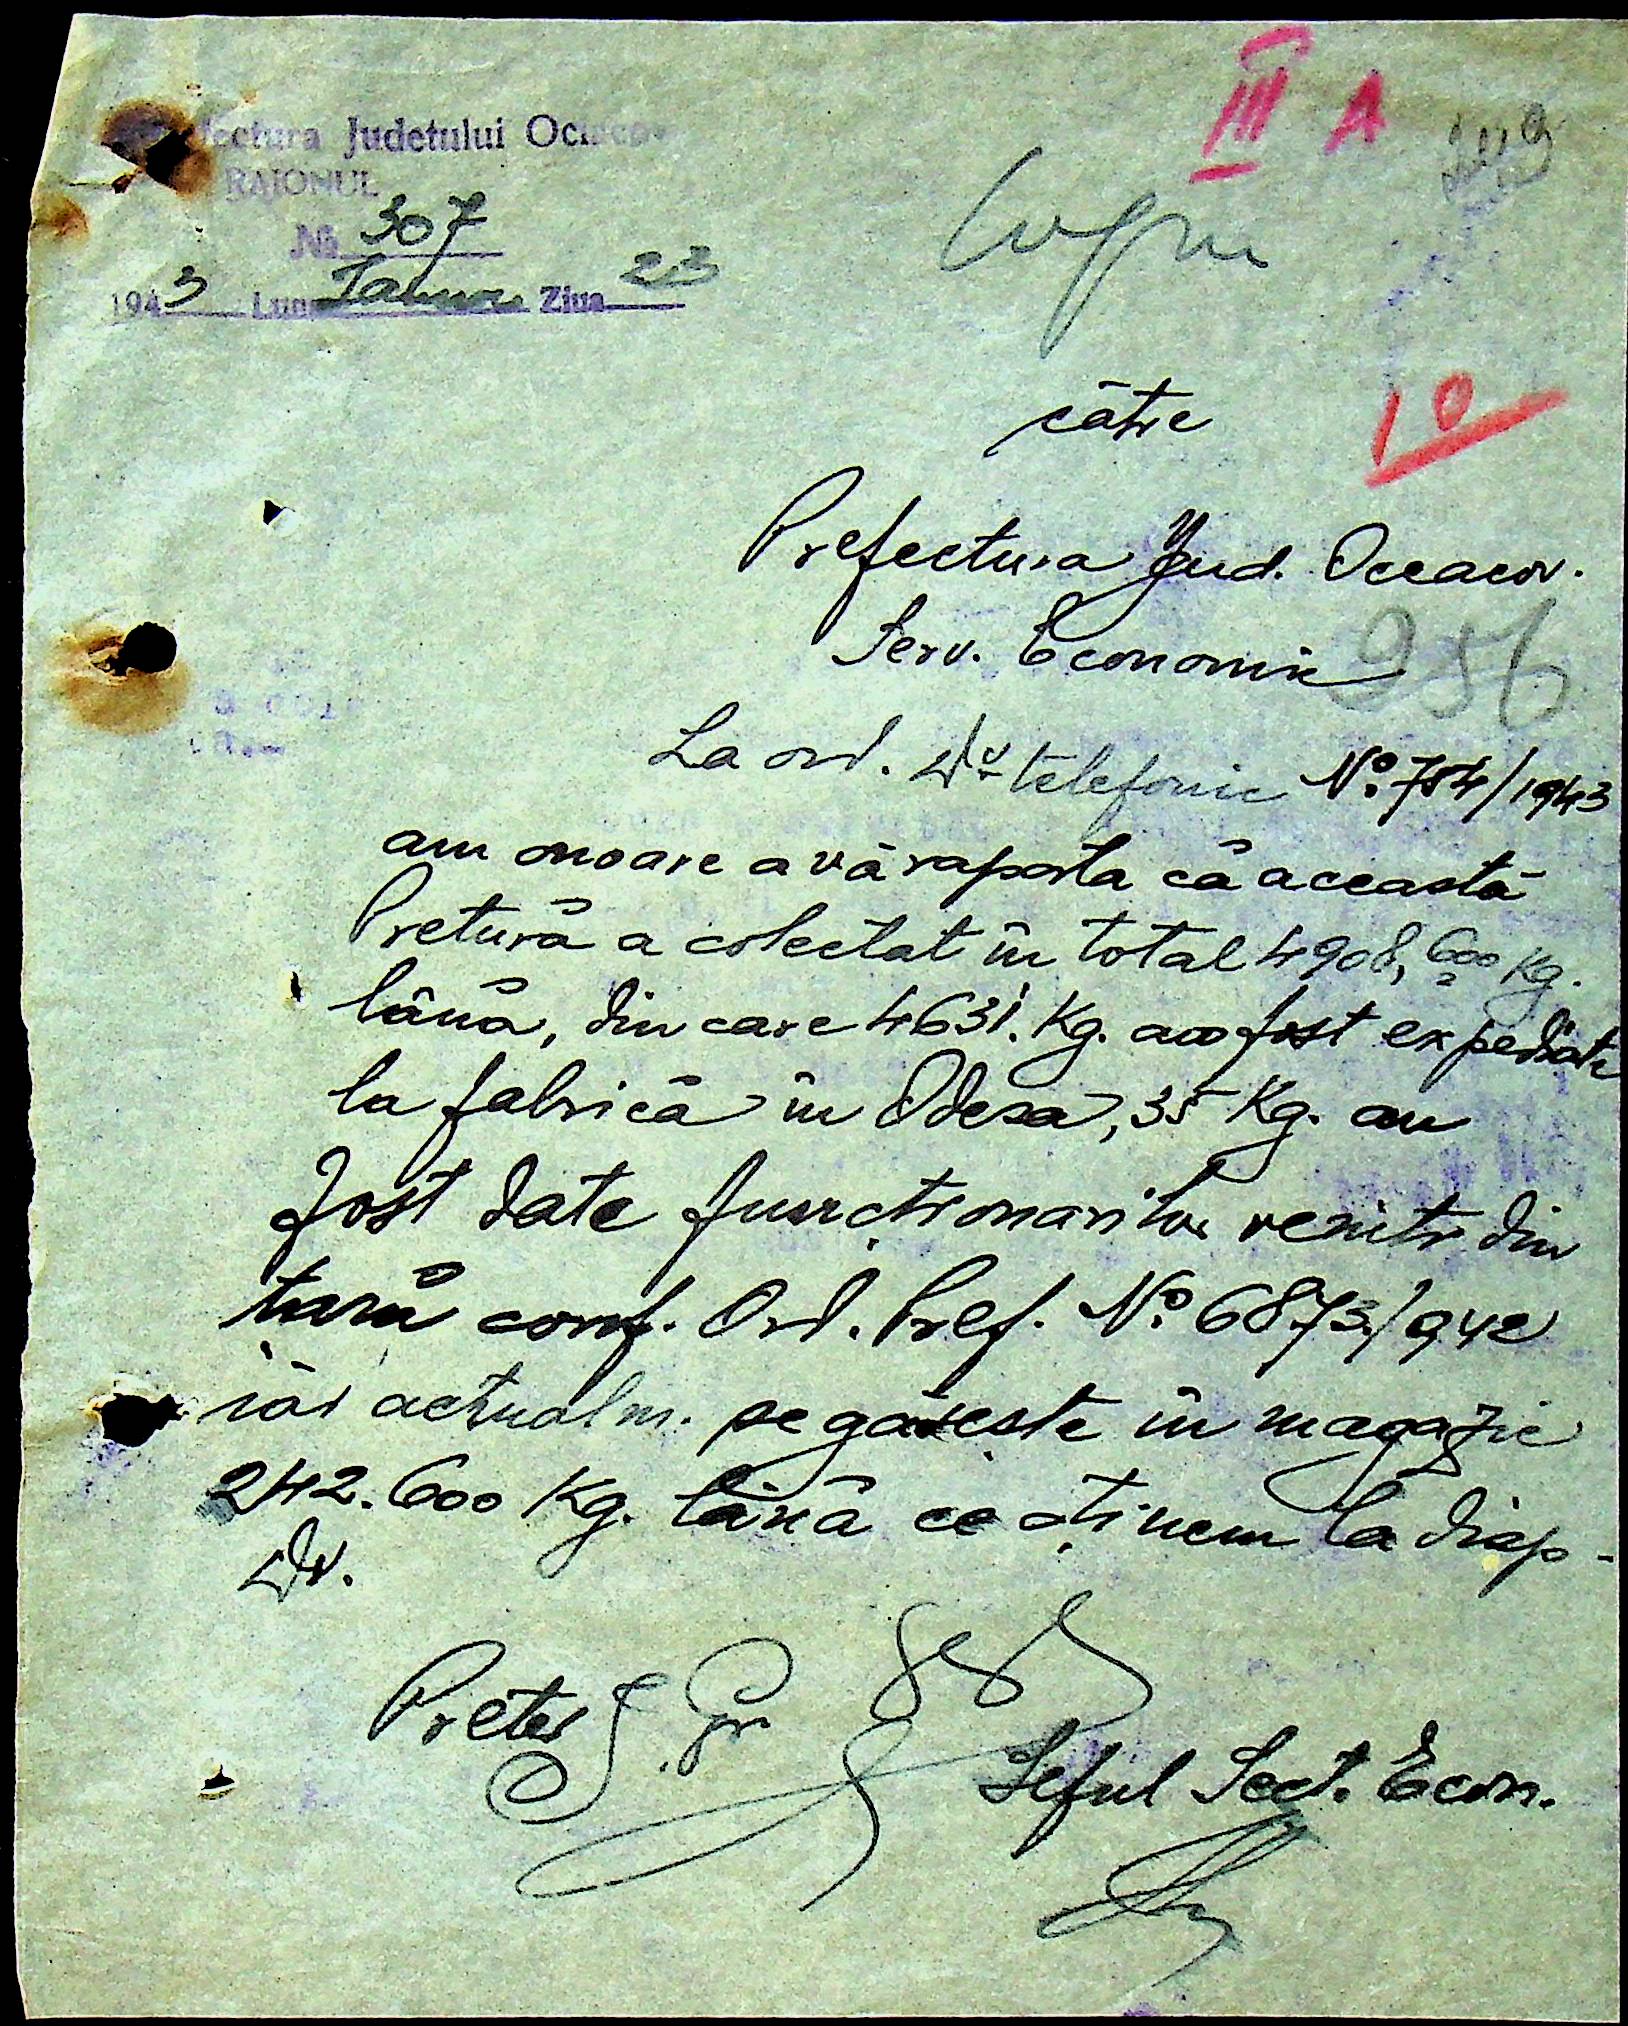 III A
Prefectura Judetului Oceacov
RAIONUL
№ 307
1943 Luna Ianuar Ziua 23
10
către
Prefectura Jud. Oceacov.
Serv. Economic
256
La ord. Dv. telefonic No. 784/1943
am onoare a vă raporta că această
Pretură a colectat în total 4908,600 Kg.
lână, din care 4631. Kg. au fost expediate
la fabrică în Odesa, 35 Kg. au
fost date funcționarilor veniți din
țară conf. Ord. Pref. No. 6873/942
iar actualm. se găsește în magazie
242.600 Kg. lână ce ținem la disp-
Dv.
Pretor
Șeful Sect. Econ.